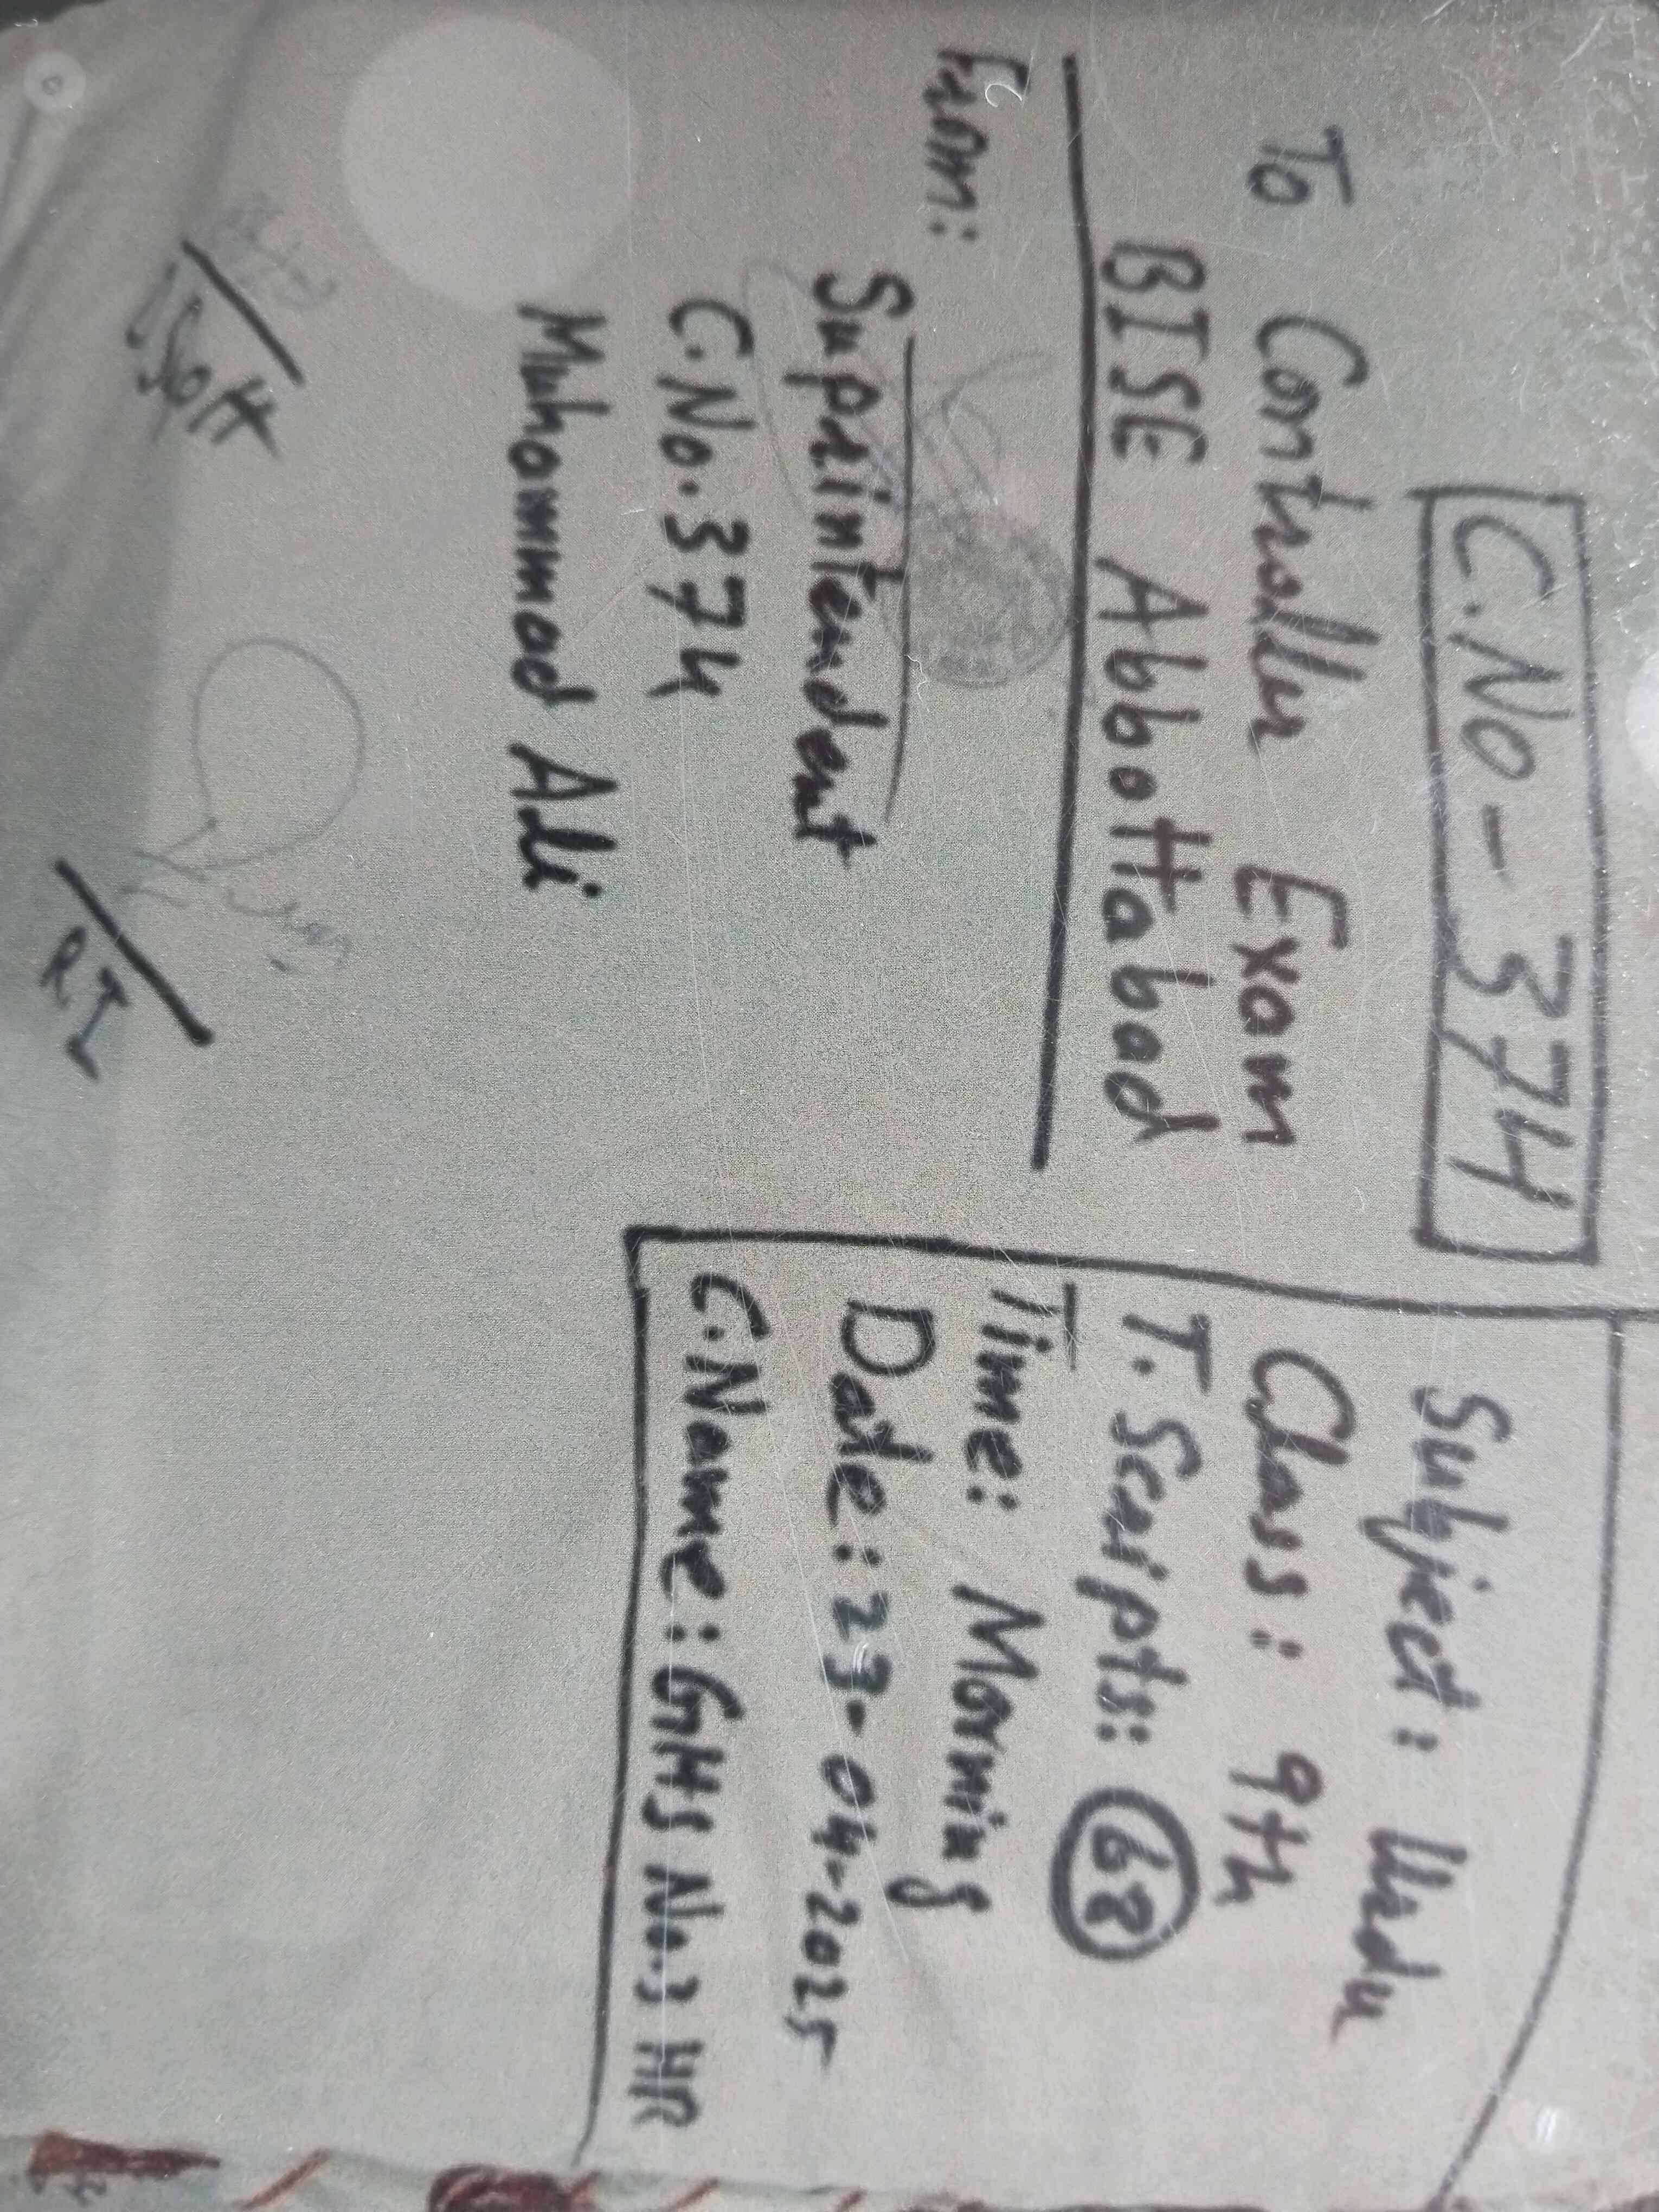 C.No - 374
To Controller Exam
BISE Abbottabad
From:
Suprintendent
C.No. 374
Muhammad Ali
Subject: Urdu
Class: 9th
T. Scripts: 68
Time: Morning
Date: 23-04-2025
C.Name: GHS No.3 HR